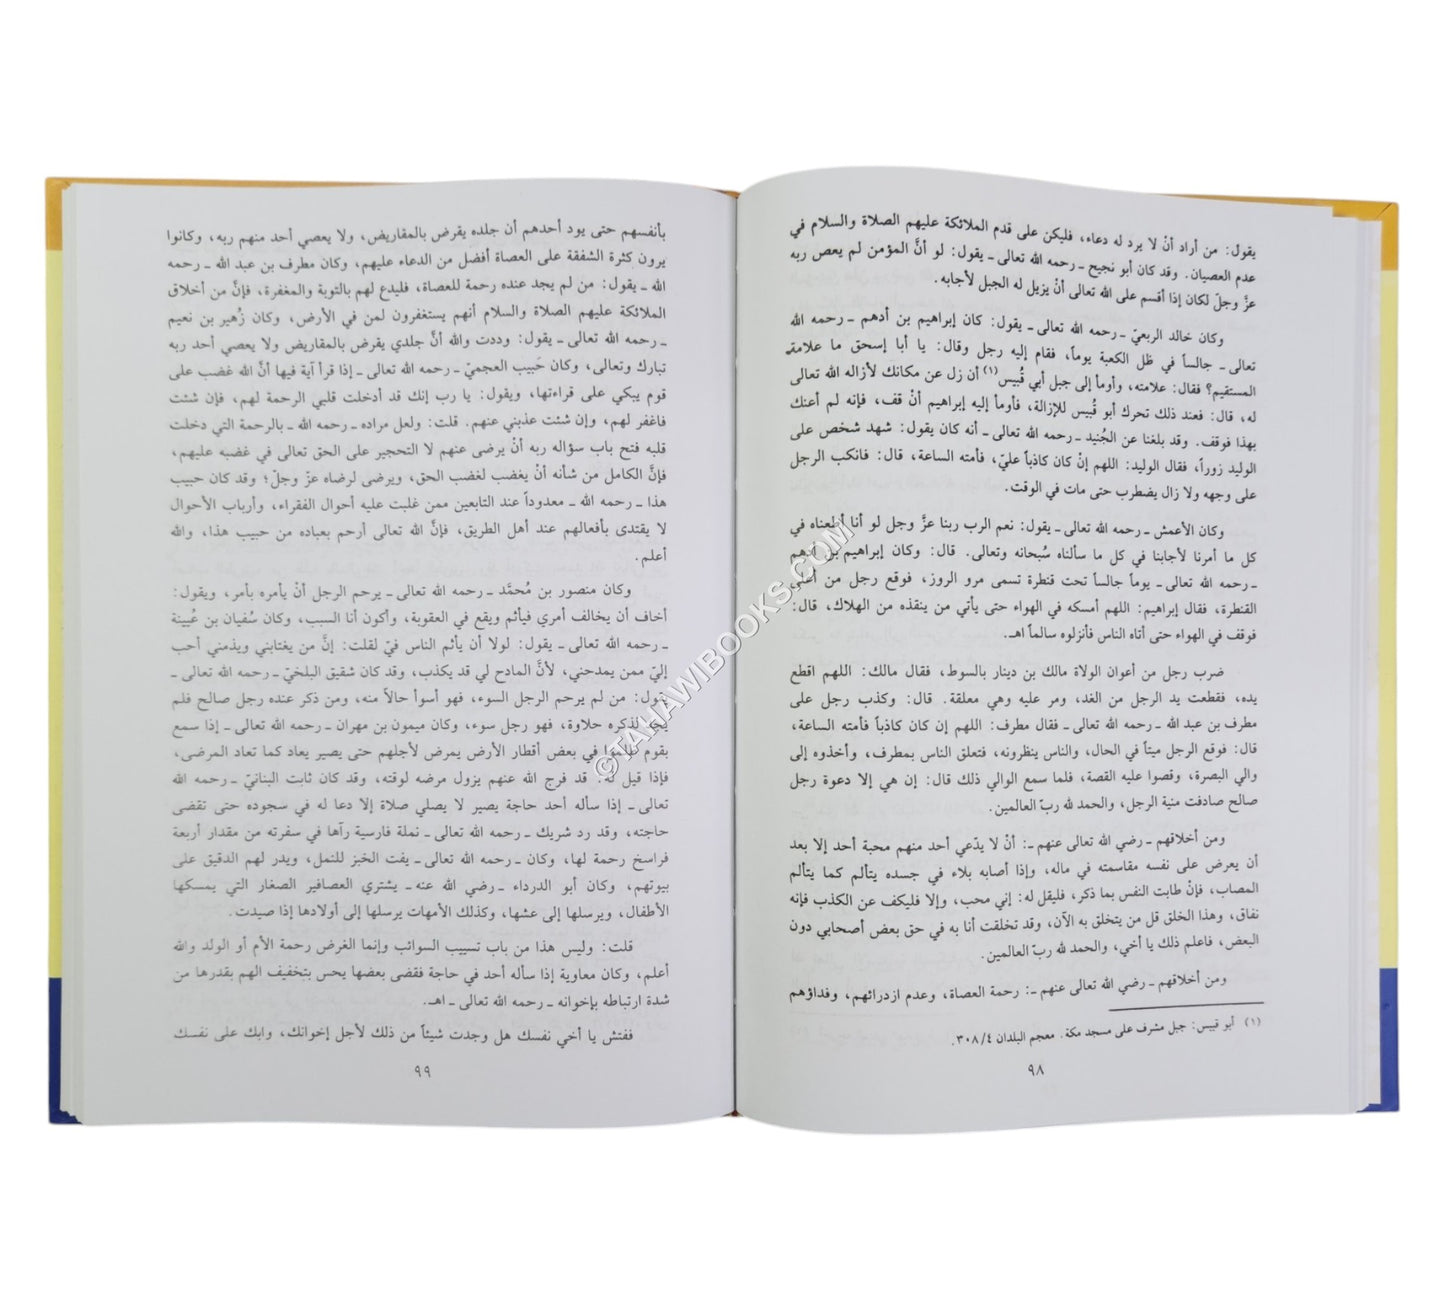 يقول: من أراد أنْ لا يرد له دعاء، فليكن على قدم الملائكة عليهم الصلاة والسلام في
عدم العصيان. وقد كان أبو نجيح ـ رحمه الله تعالى ـ يقول: لو أنَّ المؤمن لم يعص ربه
عزَّ وجلّ لكان إذا أقسم على الله تعالى أنْ يزيل له الجبل لأجابه.
وكان خالد الربعيّ ـ رحمه الله تعالى ـ يقول: كان إبراهيم بن أدهم ـ رحمه الله
تعالى ـ جالساً في ظل الكعبة يوماً، فقام إليه رجل وقال: يا أبا إسحق ما علامة
المستقيم؟ فقال: علامته، وأومأ إلى جبل أبي قُبيس(١) أن زل عن مكانك لأزاله الله تعالى
له، قال: فعند ذلك تحرك أبو قُبيس للإزالة، فأومأ إليه إبراهيم أنْ قف، فإنه لم أعنك
بهذا فوقف. وقد بلغنا عن الجُنيد ـ رحمه الله تعالى ـ أنه كان يقول: شهد شخص على
الوليد زوراً، فقال الوليد: اللهم إنْ كان كاذباً عليّ، فأمته الساعة، قال: فانكب الرجل
على وجهه ولا زال يضطرب حتى مات في الوقت.
وكان الأعمش ـ رحمه الله تعالى ـ يقول: نعم الرب ربنا عزَّ وجل لو أنا أطعناه في
كل ما أمرنا لأجابنا في كل ما سألناه سُبحانه وتعالى. قال: وكان إبراهيم بن أدهم
ـ رحمه الله تعالى ـ يوماً جالساً تحت قنطرة تسمى مرو الروز، فوقع رجل من أعلى
القنطرة، فقال إبراهيم: اللهم أمسكه في الهواء حتى يأتي من ينقذه من الهلاك، قال:
فوقف في الهواء حتى أتاه الناس فأنزلوه سالماً اهـ.
ضرب رجل من أعوان الولاة مالك بن دينار بالسوط، فقال مالك: اللهم اقطع
يده، فقطعت يد الرجل من الغد، ومر عليه وهي معلقة. قال: وكذب رجل على
مطرف بن عبد الله ـ رحمه الله تعالى ـ فقال مطرف: اللهم إن كان كاذباً فأمته الساعة،
قال: فوقع الرجل ميتاً في الحال، والناس ينظرونه، فتعلق الناس بمطرف، وأخذوه إلى
والي البصرة، وقصوا عليه القصة، فلما سمع الوالي ذلك قال: إن هي إلا دعوة رجل
صالح صادفت منية الرجل، والحمد لله ربّ العالمين.
ومن أخلاقهم ـ رضي الله تعالى عنهم ـ: أنْ لا يدّعي أحد منهم محبة أحد إلا بعد
أن يعرض على نفسه مقاسمته في ماله، وإذا أصابه بلاء في جسده يتألم كما يتألم
المصاب، فإنْ طابت النفس بما ذكر، فليقل له: إني محب، وإلا فليكف عن الكذب فإنه
نفاق، وهذا الخلق قل من يتخلق به الآن، وقد تخلقت أنا به في حق بعض أصحابي دون
البعض، فاعلم ذلك يا أخي، والحمد لله ربّ العالمين.
ومن أخلاقهم ـ رضي الله تعالى عنهم ـ: رحمة العصاة، وعدم ازدرائهم، وفداؤهم
(١) أبو قبيس: جبل مشرف على مسجد مكة. معجم البلدان ٣٠٨/٤.
٩٨
بأنفسهم حتى يود أحدهم أن جلده يقرض بالمقاريض، ولا يعصي أحد منهم ربه، وكانوا
يرون كثرة الشفقة على العصاة أفضل من الدعاء عليهم، وكان مطرف بن عبد الله ـ رحمه
الله ـ يقول: من لم يجد عنده رحمة للعصاة، فليدع لهم بالتوبة والمغفرة، فإنَّ من أخلاق
الملائكة عليهم الصلاة والسلام أنهم يستغفرون لمن في الأرض، وكان زُهير بن نعيم
ـ رحمه الله تعالى ـ يقول: وددت والله أنَّ جلدي يقرض بالمقاريض ولا يعصي أحد ربه
تبارك وتعالى، وكان حَبيب العجميّ ـ رحمه الله تعالى ـ إذا قرأ آية فيها أنَّ الله غضب على
قوم يبكي على قراءتها، ويقول: يا رب إنك قد أدخلت قلبي الرحمة لهم، فإن شئت
فاغفر لهم، وإن شئت عذبني عنهم. قلت: ولعل مراده ـ رحمه الله ـ بالرحمة التي دخلت
قلبه فتح باب سؤاله ربه أنْ يرضى عنهم لا التحجير على الحق تعالى في غضبه عليهم،
فإنَّ الكامل من شأنه أنْ يغضب لغضب الحق، ويرضى لرضاه عزّ وجلّ؛ وقد كان حبيب
هذا ـ رحمه الله ـ معدوداً عند التابعين ممن غلبت عليه أحوال الفقراء، وأرباب الأحوال
لا يقتدى بأفعالهم عند أهل الطريق، فإنَّ الله تعالى أرحم بعباده من حبيب هذا، والله
أعلم.
وكان منصور بن مُحمَّد ـ رحمه الله تعالى ـ يرحم الرجل أنْ يأمره بأمر، ويقول:
أخاف أن يخالف أمري فيأثم ويقع في العقوبة، وأكون أنا السبب، وكان سُفيان بن عُيينة
ـ رحمه الله تعالى ـ يقول: لولا أن يأثم الناس فيّ لقلت: إنَّ من يغتابني ويذمني أحب
إليّ ممن يمدحني، لأنَّ المادح لي قد يكذب، وقد كان شقيق البلخيّ ـ رحمه الله تعالى ـ
يقول: من لم يرحم الرجل السوء، فهو أسوأ حالاً منه، ومن ذكر عنده رجل صالح فلم
يجد لذكره حلاوة، فهو رجل سوء، وكان ميمون بن مهران ـ رحمه الله تعالى ـ إذا سمع
بقوم ظلموا في بعض أقطار الأرض يمرض لأجلهم حتى يصير يعاد كما تعاد المرضى،
فإذا قيل له: قد فرج الله عنهم يزول مرضه لوقته، وقد كان ثابت البنانيّ ـ رحمه الله
تعالى ـ إذا سأله أحد حاجة يصير لا يصلي صلاة إلا دعا له في سجوده حتى تقضى
حاجته، وقد رد شريك ـ رحمه الله تعالى ـ نملة فارسية رآها في سفرته من مقدار أربعة
فراسخ رحمة لها، وكان ـ رحمه الله تعالى ـ يفت الخبز للنمل، ويدر لهم الدقيق على
بيوتهم، وكان أبو الدرداء ـ رضي الله عنه ـ يشتري العصافير الصغار التي يمسكها
الأطفال، ويرسلها إلى عشها، وكذلك الأمهات يرسلها إلى أولادها إذا صيدت.
قلت: وليس هذا من باب تسييب السوائب وإنما الغرض رحمة الأم أو الولد والله
أعلم، وكان معاوية إذا سأله أحد في حاجة فقضى بعضها يحس بتخفيف الهم بقدرها من
شدة ارتباطه بإخوانه ـ رحمه الله تعالى ـ اهـ.
ففتش يا أخي نفسك هل وجدت شيئاً من ذلك لأجل إخوانك، وابك على نفسك
٩٩
©TAHAWIBOOKS.COM